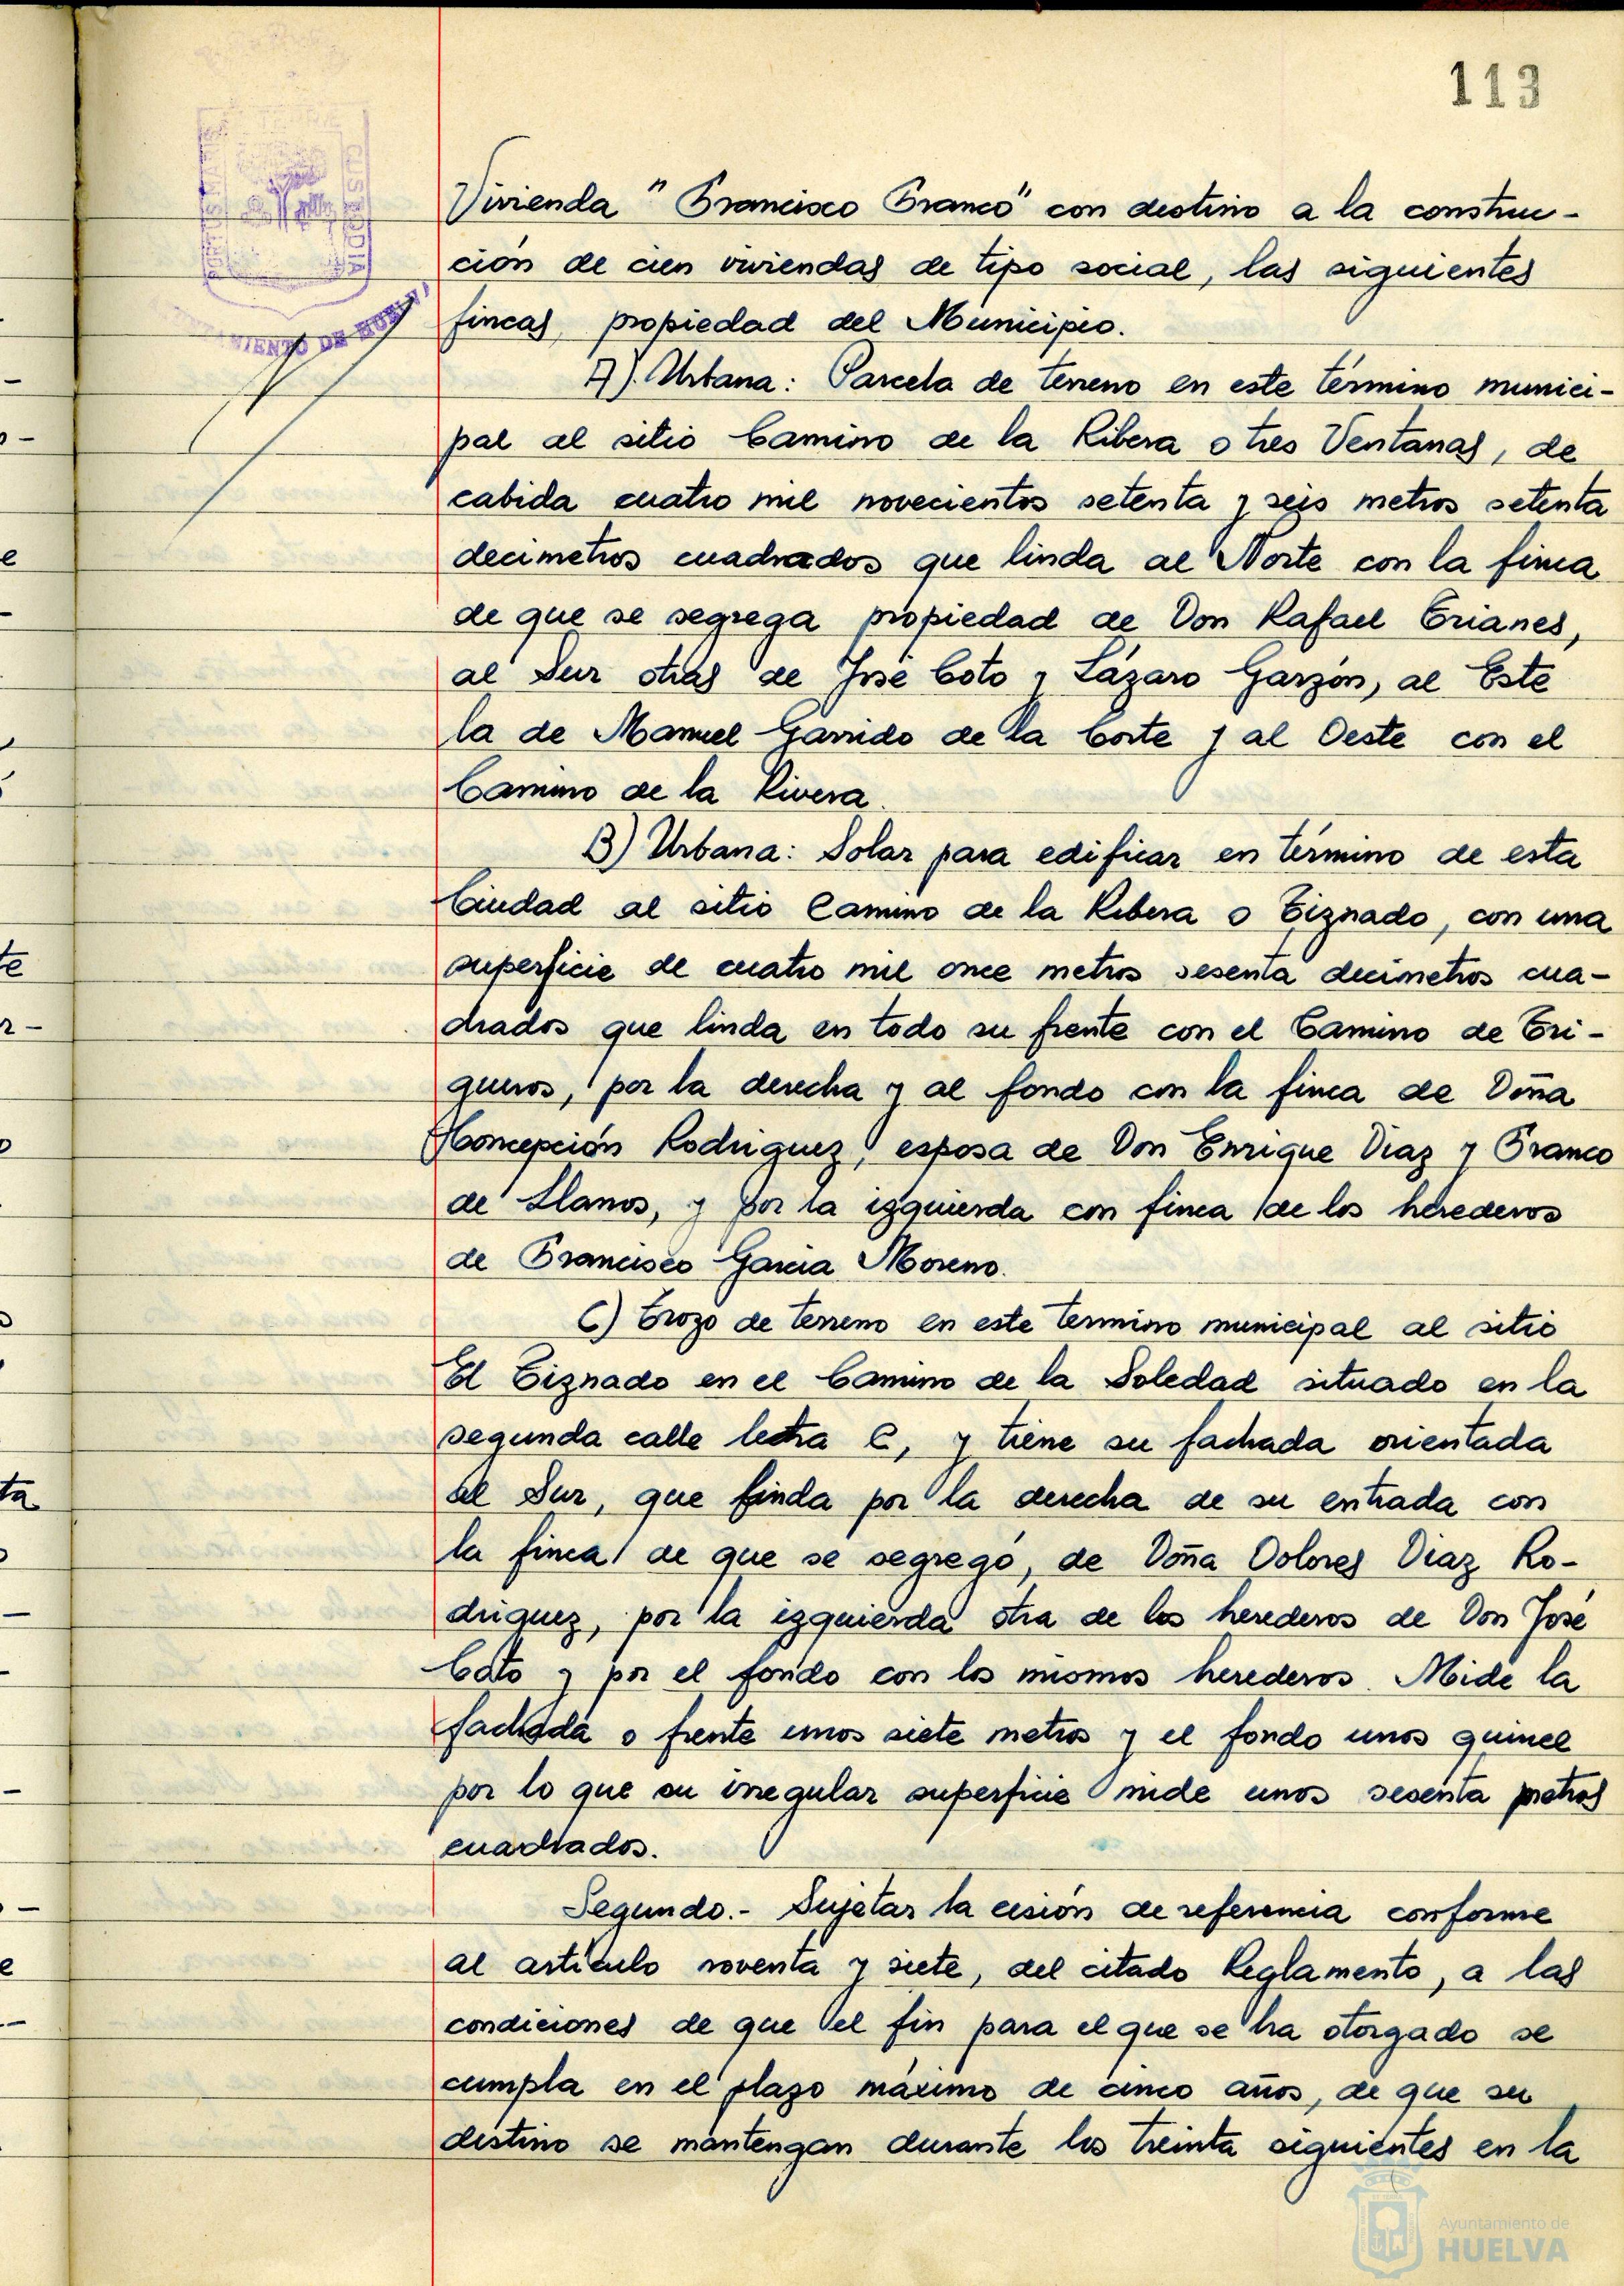 113
PORTUS MARIS
ET TERRE
CUSTODIA
AYUNTAMIENTO DE HUELVA
Vivienda "Francisco Franco" con destino a la construc-
ción de cien viviendas de tipo social, las siguientes
fincas, propiedad del Municipio.
A). Urbana: Parcela de terreno en este término munici-
pal al sitio Camino de la Ribera o tres Ventanas, de
cabida cuatro mil novecientos setenta y seis metros setenta
decimetros cuadrados que linda al Norte con la finca
de que se segrega propiedad de Don Rafael Trianes,
al Sur otras de José Coto y Lázaro Garzón, al Este
la de Manuel Garrido de la Corte y al Oeste con el
Camino de la Rivera.
B) Urbana: Solar para edificar en término de esta
Ciudad al sitio Camino de la Ribera o Tiznado, con una
superficie de cuatro mil once metros sesenta decimetros cua-
drados que linda en todo su frente con el Camino de Tri-
gueros, por la derecha y al fondo con la finca de Doña
Concepción Rodriguez, esposa de Don Enrique Diaz y Franco
de Llanos, y por la izquierda con finca de los herederos
de Francisco Garcia Moreno.
C) Trozo de terreno en este termino municipal al sitio
El Tiznado en el Camino de la Soledad situado en la
segunda calle letra C, y tiene su fachada orientada
al Sur, que linda por la derecha de su entrada con
la finca de que se segregó, de Doña Dolores Diaz Ro-
driguez, por la izquierda otra de los herederos de Don José
Coto y por el fondo con los mismos herederos. Mide la
fachada o frente unos siete metros y el fondo unos quince
por lo que su irregular superficie mide unos sesenta metros
cuadrados.
Segundo.- Sujetar la cesión de referencia conforme
al artículo noventa y siete, del citado Reglamento, a las
condiciones de que el fin para el que se ha otorgado se
cumpla en el plazo máximo de cinco años, de que su
destino se mantengan durante los treinta siguientes en la
Ayuntamiento de
HUELVA